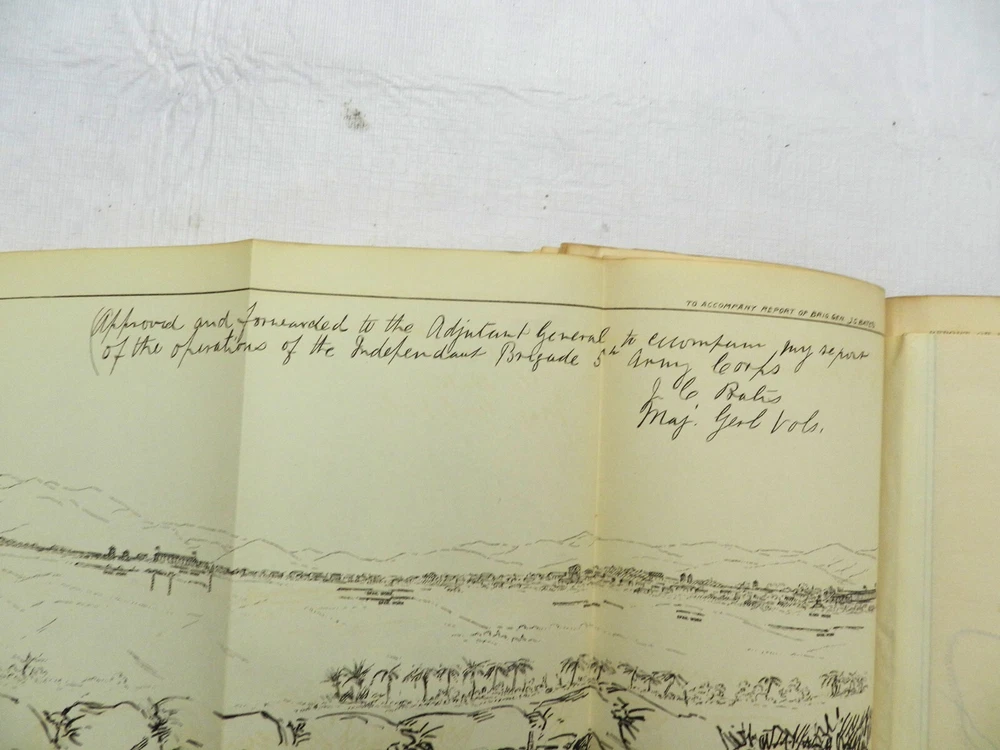 TO ACCOMPANY REPORT OF BRIG GEN J C BATES
(Approved and forwarded to the Adjutant General to accompany my report
of the operations of the Independant Brigade 5th Army Corps
J C Bates
Maj. Genl Vols.